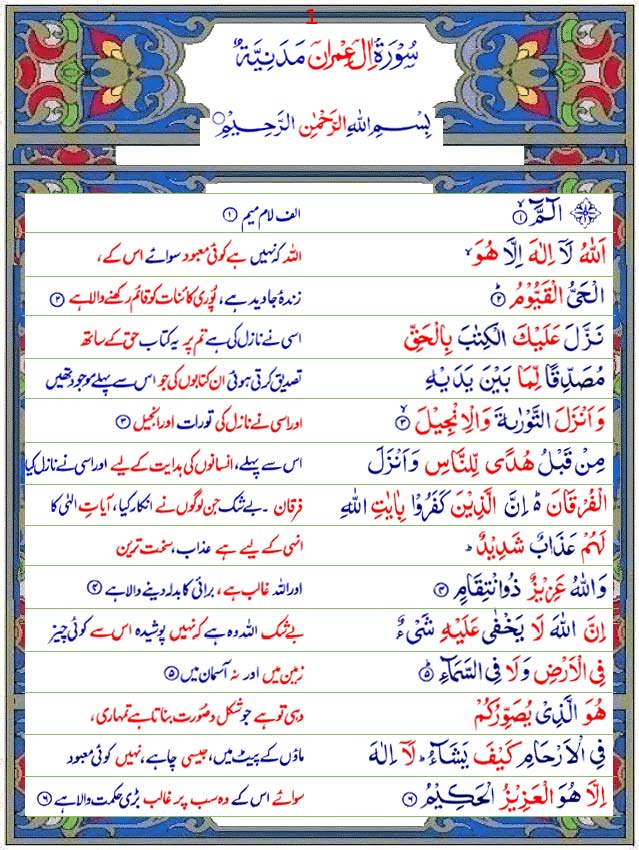 1
سُوۡرَةُ اٰلِ عِمۡرٰنَ مَدَنِيَّةٌ
بِسۡمِ اللهِ الرَّحۡمٰنِ الرَّحِيۡمِ
الٓمّٓ ۙ﴿۱﴾ الف لام میم ﴿۱﴾
اَللهُ لَاۤ اِلٰهَ اِلَّا هُوَ ۙ اللہ کہ نہیں ہے کوئی معبود سوائے اس کے،
الۡحَىُّ الۡقَيُّوۡمُ ؕ﴿۲﴾ زندۂ جاوید ہے، پُوری کائنات کو قائم رکھنے والا ہے ﴿۲﴾
نَزَّلَ عَلَيۡكَ الۡكِتٰبَ بِالۡحَقِّ اسی نے نازل کی ہے تم پر یہ کتاب حق کے ساتھ
مُصَدِّقًا لِّمَا بَيۡنَ يَدَيۡهِ تصدیق کرتی ہوئی ان کتابوں کی جو اس سے پہلے موجود تھیں
وَاَنۡزَلَ التَّوۡرٰٮةَ وَالۡاِنۡجِيۡلَ ۙ﴿۳﴾ اور اسی نے نازل کی تورات اور انجیل ﴿۳﴾
مِنۡ قَبۡلُ هُدًى لِّلنَّاسِ وَاَنۡزَلَ اس سے پہلے، انسانوں کی ہدایت کے لیے اور اسی نے نازل کیا
الۡفُرۡقَانَ ؕ اِنَّ الَّذِيۡنَ كَفَرُوۡا بِاٰيٰتِ اللهِ فرقان ۔ بے شک جن لوگوں نے انکار کیا، آیاتِ الٰہی کا
لَهُمۡ عَذَابٌ شَدِيۡدٌ ؕ انہی کے لیے ہے عذاب، سخت ترین
وَاللهُ عَزِيۡزٌ ذُو انۡتِقَامٍ ﴿۴﴾ اور اللہ غالب ہے، برائی کا بدلہ دینے والا ہے ﴿۴﴾
اِنَّ اللهَ لَا يَخۡفٰى عَلَيۡهِ شَىۡءٌ بے شک اللہ وہ ہے کہ نہیں پوشیدہ اس سے کوئی چیز
فِى الۡاَرۡضِ وَلَا فِى السَّمَآءِ ؕ﴿۵﴾ زمین میں اور نہ آسمان میں ﴿۵﴾
هُوَ الَّذِىۡ يُصَوِّرُكُمۡ وہی تو ہے جو شکل و صُورت بناتا ہے تمہاری،
فِى الۡاَرۡحَامِ كَيۡفَ يَشَآءُ ؕ لَاۤ اِلٰهَ ماؤں کے پیٹ میں، جیسی چاہے، نہیں کوئی معبود
اِلَّا هُوَ الۡعَزِيۡزُ الۡحَكِيۡمُ ﴿۶﴾ سوائے اس کے وہ سب پر غالب بڑی حکمت والا ہے ﴿۶﴾